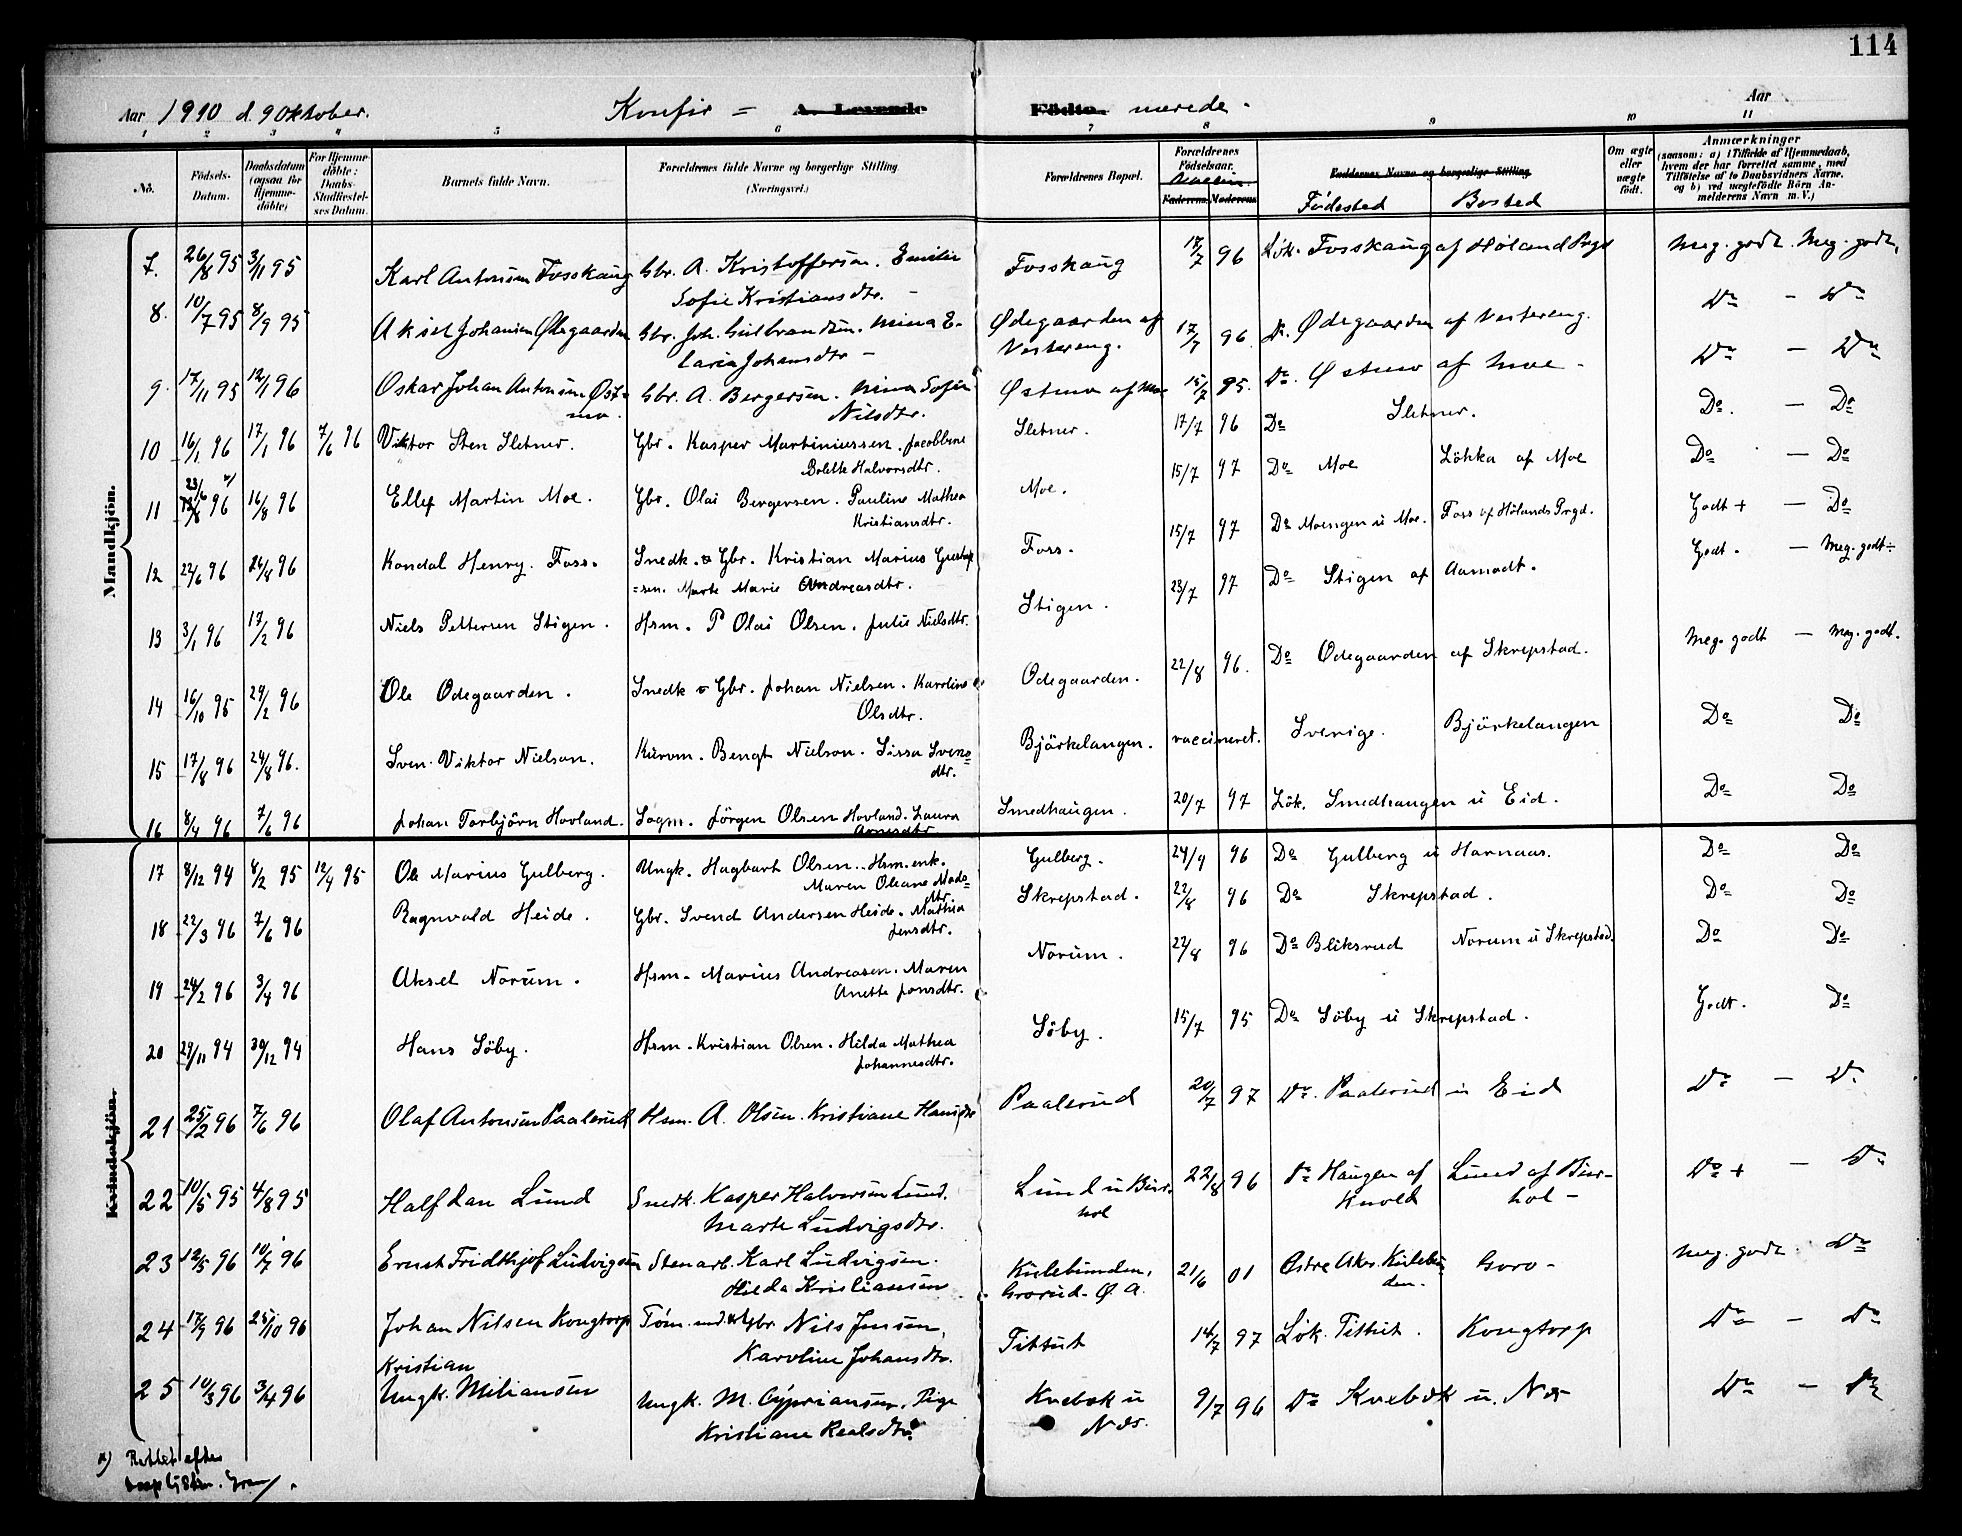 114
Aar 1910 d. 9 Oktober. Konfir = A. Levende Födte. merede. Aar
1 2 3 4 5 6 7 8 9 10 11
No. Födsels-Datum. Daabsdatum (ogsaa for Hjemmedöbte) For Hjemmedöbte: Daabs-Stadfæstelses Datum. Barnets fulde Navn. Forældrenes fulde Navne og borgerlige Stilling (Næringsvei.) Forældrenes Bopæl. Forældrenes Födselsaar. Vaccin. Faderens Moderens Faddernes Navne og borgerlige Stilling Födested Bosted Om ægte eller uægte födt. Anmærkninger (saasom: a) i Tilfælde af Hjemmedaab, hvem der har forrettet samme, med Tilföielse af to Daabsvidners Navne, og b) ved uægtefödte Börn Anmelderens Navn m. V.)
Mandkjön.
7. 26/8 95 3/11 95 Karl Antonsen Fosskaug Gbr. A. Kristoffersen. Emilie Sofie Kristiansdtr. Fosskaug 17/7 96 Løk. Fosskaug af Høland Prgd Meg. godt. Meg. godt.
8. 10/7 95 8/9 95 Aksel Johansen Ødegaarden Gbr. Joh. Gulbrandsen. Mina E. Laria Johansdtr. Ødegaarden af Vestereng. 17/7 96 Do. Ødegaarden af Vestereng. Do — Do
9. 17/11 95 12/1 96 Oskar Johan Antonsen Østmo. Gbr. A. Bergersen. Mina Sofie Nilsdtr. Østmo af Moe 15/7 95. Do. Østmo af Moe - Do — Do
10 16/1 96 17/1 96 7/6 96 Viktor Sten Sletner. Gbr. Kasper Martiniussen. Jacobbine Bolette Halvorsdtr. Sletner. 17/7 96 Do Sletner. Do. — Do
11 23/6 x) 96 16/8 96 Ellef Martin Moe. Gbr. Olai Bergersen. Pauline Mathea Kristiansdtr. Moe. 15/7 97 Do Moe Lökka af Moe Do — Do
12 22/6 96 24/8 96 Kondal Henry. Foss. Snedk. & Gbr. Kristian Marius Gustafsen. Marte Marie Andreasdtr. Foss. 15/7 97 Do Moengen u Moe. Foss af Hölands Prgd. Godt + — Do
13 3/1 96 17/2 96 Niels Pettersen Stigen. Hsm. P Olai Olsen. Julie Nielsdtr. Stigen. 23/7 97 Do Stigen af Aamodt. Godt. — Meg. godt÷
14 16/10 95 24/2 96 Ole Ödegaarden. Snedk & Gbr. Johan Nielsen. Karoline Olsdtr. Ödegaarden. 22/8 96. Do Ödegaarden af Skrepstad. Meg. godt — Meg. godt.
15 17/8 96 24/8 96. Sven Viktor Nielson. Kurvm. Bengt Nielson. Sissa Svensdtr. Björkelangen. vaccineret. Sverige. Björkelangen Do Do
16 8/4 96 7/6 96 Johan Torbjörn Hovland. Sagm. Jörgen Olsen Hovland. Laura Arnesdtr Smedhaugen. 20/7 97 Lök. Smedhaugen u Eid. Do Do
Kvindekjön.
17 8/12 94 4/2 95 12/4 95 Ole Marius Gulberg. Ungk. Hagbart Olsen. Hsm. enk. Maren Oleane Madsdtr Gulberg. 24/9 96 Do Gulberg u Harnaas. Do Do
18 22/3 96 7/6 96 Ragnvald Heide. Gbr. Svend Andersen Heide. Mathea Jensdtr. Skrepstad. 22/8 96 Do Skrepstad. Do Do
19 24/2 96 3/4 96 Aksel Norum. Hsm. Marius Andreasen. Maren Anette Jonsdtr. Norum. 22/8 96 Do Bliksrud Norum u Skrepstad. Do Do
20 29/11 94 30/12 94 Hans Söby. Hsm. Kristian Olsen. Hilda Mathea Johannesdtr. Söby. 15/7 95 Do Söby u Skrepstad. Godt. Do
21 25/2 96 7/6 96 Olaf Antonsen Paalerud Hsm. A. Olsen. Kristiane Hansdtr Paalerud 20/7 97 Do. Paalerud u Eid Do — Do
22 10/5 95 4/8 95 Halfdan Lund Snedk. Kasper Halvorsen Lund. Marte Ludvigsdtr. Lund u Burhol 22/8 96 Do Haugen af Knold Lund af Burhol - Do + — Do
23 12/5 96 10/7 96 Ernst Fridthjof Ludvigsen Stenarb. Karl Ludvigsen. Hilda Kristiansen Grorud. Ø. A. 21/6 01 Østre Aker. Goro - Meg. godt. Do
24 17/9 96 25/10 96 Johan Nilsen Kongtorp Töm. md & Gbr Nils Jensen, Karoline Johansdtr. Tittut 14/7 97 Lök. Tittut. Kongtorp Do — Do
25 10/3 96 3/4 96 Kristian Ungk. Miliansen Ungk. M. Cypriansen, Pige Kristiane Realsdtr. Kvebæk u Næs. 9/7 96 Do Kvebæk u. Næs Do — Do
x) Rettet efter